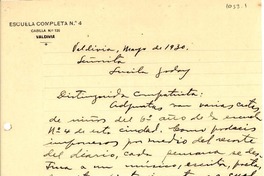 ESCUELA COMPLETA N.° 4
CASILLA N.° 135
VALDIVIA
Valdivia, Mayo de 1930.
Señorita
Lucila Godoy
Distinguida Compatriota:
Adjuntas van varias cartas
de niños del 6° año de la escuela
N° 4 de esta ciudad. Como podéis
imponeros por medio del recorte
del diario, cada semana se de-
dica a un músico, escritor, poeta